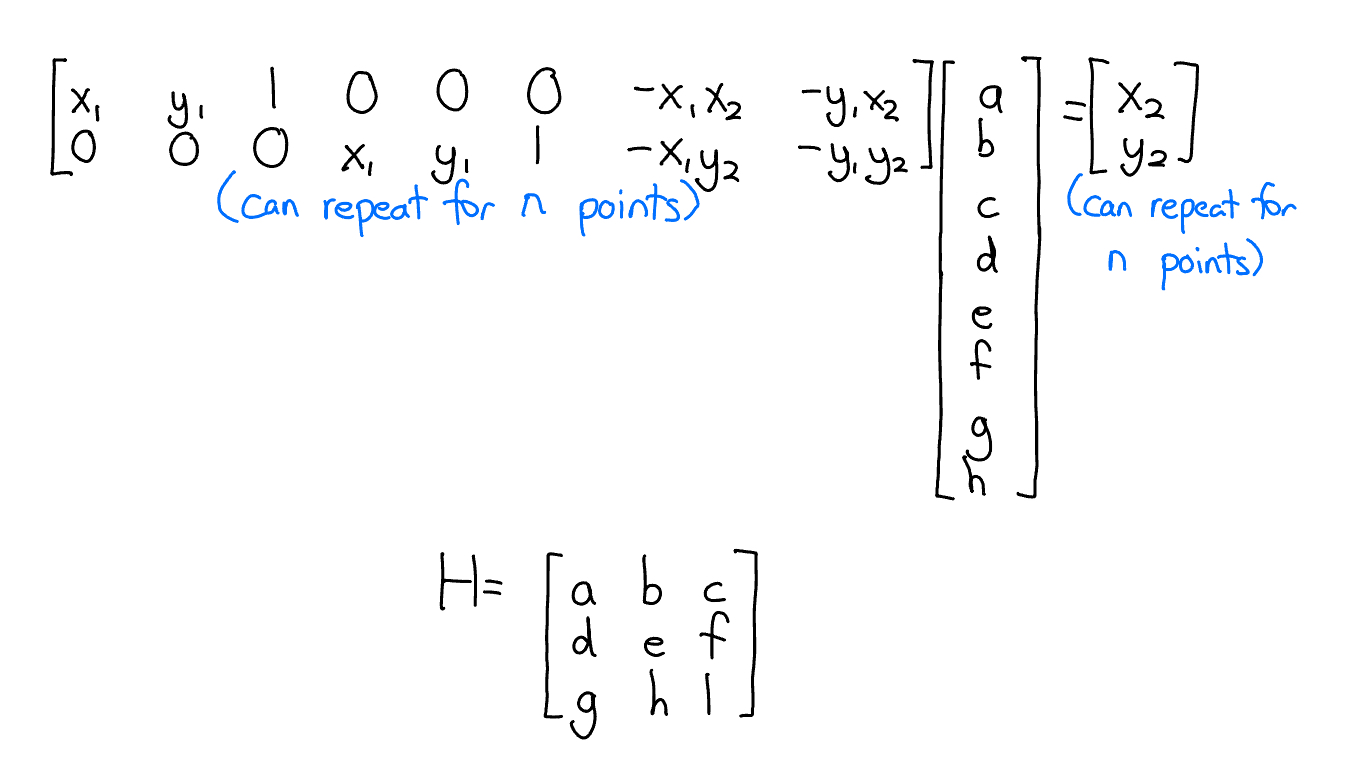 [x₁ y₁ 1 0 0 0 -x₁x₂ -y₁x₂] [a = [x₂]
[0 0 0 x₁ y₁ 1 -x₁y₂ -y₁y₂] b [y₂]
(can repeat for n points) c (can repeat for
d n points)
e
f
g
h]
H= [a b c
d e f
g h 1]